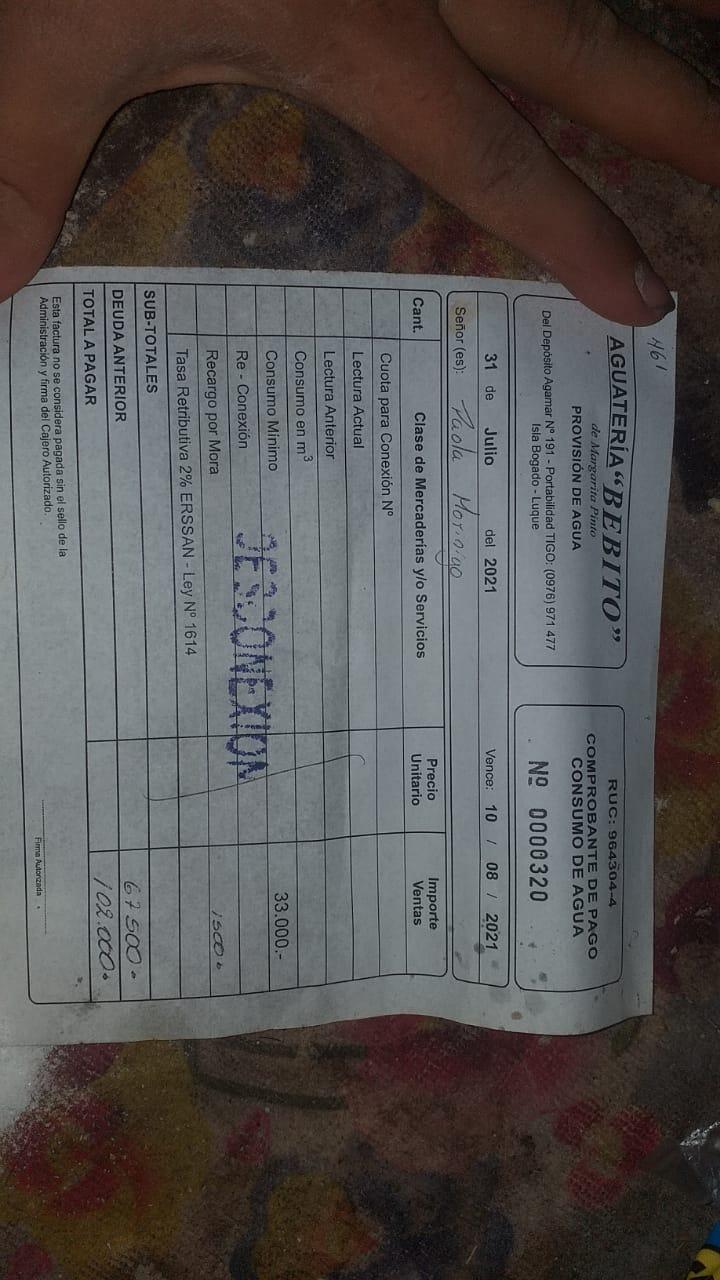 461
AGUATERÍA "BEBITO"
de Margarita Pinto
PROVISIÓN DE AGUA
Del Depósito Agamar Nº 191 - Portabilidad TIGO: (0976) 971 477
Isla Bogado - Luque
RUC: 964304-4
COMPROBANTE DE PAGO
CONSUMO DE AGUA
Nº 0000320
31 de Julio del 2021 Vence: 10 / 08 / 2021
Señor (es): Paola Morinigo
Cant. Clase de Mercaderías y/o Servicios Precio Unitario Importe Ventas
Cuota para Conexión Nº
Lectura Actual
Lectura Anterior
Consumo en m³
Consumo Mínimo 33.000.-
Re - Conexión
DESCONEXION
Recargo por Mora 1500
Tasa Retributiva 2% ERSSAN - Ley Nº 1614
SUB-TOTALES
DEUDA ANTERIOR 67.500
TOTAL A PAGAR 102.000
Esta factura no se considera pagada sin el sello de la
Administración y firma del Cajero Autorizado.
Firma Autorizada